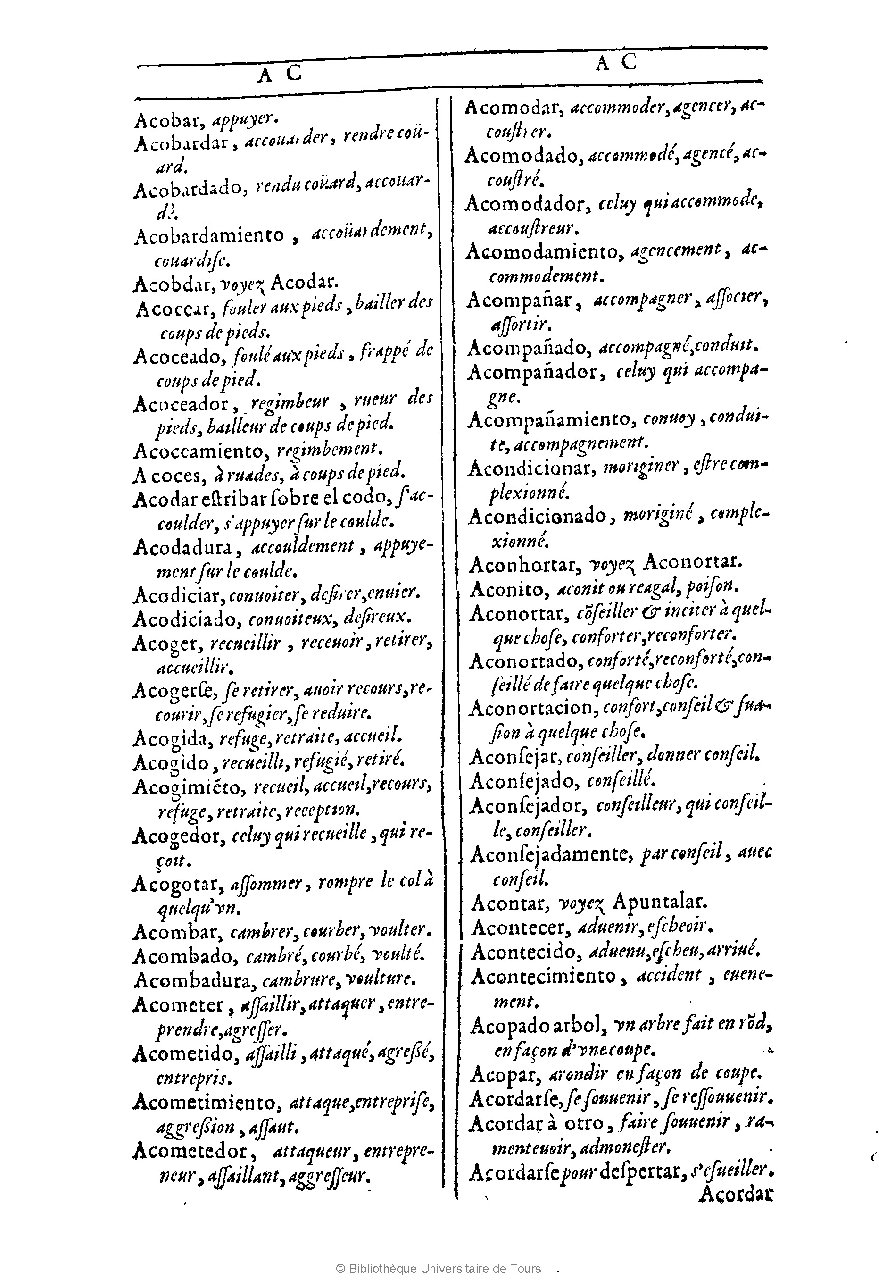 A C
Acobar, appuyer.
Acobardar, accouarder, rendre coü-
ard.
Acobardado, rendu coüard, accouar-
dé.
Acobardamiento, accoüardement,
couardiſe.
Acobdar, voyez Acodar.
Acoccar, fouler aux pieds, bailler des
coups de pieds.
Acoceado, foulé aux pieds, frappé de
coups de pied.
Acoceador, regimbeur, rueur des
pieds, bailleur de coups de pied.
Acoccamiento, regimbement.
A coces, à ruades, à coups de pied.
Acodar eſtribar ſobre el codo, ſ'ac-
coulder, s'appuyer ſur le coulde.
Acodadura, accouldement, appuye-
ment ſur le coulde.
Acodiciar, conuoiter, deſirer, enuier.
Acodiciado, conuoiteux, deſireux.
Acoger, recueillir, receuoir, retirer,
accueillir.
Acogerſe, ſe retirer, auoir recours, re-
courir, ſe refugier, ſe reduire.
Acogida, refuge, retraite, accueil.
Acogido, recueilli, refugié, retiré.
Acogimiẽto, recueil, accueil, recours,
refuge, retraite, reception.
Acogedor, celuy qui recueille, qui re-
çoit.
Acogotar, aſſommer, rompre le col à
quelqu'vn.
Acombar, cambrer, courber, voulter.
Acombado, cambré, courbé, voulté.
Acombadura, cambrure, voulture.
Acometer, aſſaillir, attaquer, entre-
prendre, agreſſer.
Acometido, aſſailli, attaqué, agreßé,
entrepris.
Acometimiento, attaque, entrepriſe,
aggreßion, aſſaut.
Acometedor, attaqueur, entrepre-
neur, aſſaillant, aggreſſeur.
A C
Acomodar, accommoder, agencer, ac-
couſtrer.
Acomodado, accommodé, agencé, ac-
couſtré.
Acomodador, celuy qui accommode,
accouſtreur.
Acomodamiento, agencement, ac-
commodement.
Acompañar, accompagner, aſſocier,
aſſortir.
Acompañado, accompagné, conduit.
Acompañador, celuy qui accompa-
gne.
Acompañamiento, conuoy, condui-
te, accompagnement.
Acondicionar, moriginer, eſtre com-
plexionné.
Acondicionado, moriginé, comple-
xionné.
Aconhortar, voyez Aconortar.
Aconito, aconit ou reagal, poiſon.
Aconortar, cõſeiller & inciter à quel-
que choſe, conforter, reconforter.
Aconortado, conforté, reconforté, con-
ſeillé de faire quelque choſe.
Aconortacion, confort, conſeil & ſua-
ſion à quelque choſe.
Aconſejar, conſeiller, donner conſeil.
Aconſejado, conſeillé.
Aconſejador, conſeilleur, qui conſeil-
le, conſeiller.
Aconſejadamente, par conſeil, auec
conſeil.
Acontar, voyez Apuntalar.
Acontecer, aduenir, eſcheoir.
Acontecido, aduenu, eſcheu, arriué.
Acontecimiento, accident, euene-
ment.
Acopado arbol, vn arbre fait en rõd,
en façon d'vne coupe.
Acopar, arondir en façon de coupe.
Acordarſe, ſe ſouuenir, ſe reſſouuenir.
Acordar à otro, faire ſouuenir, ra-
menteuoir, admoneſter.
Acordarſe pour deſpertar, s'eſueiller.
Acordar
© Bibliothèque Universitaire de Tours